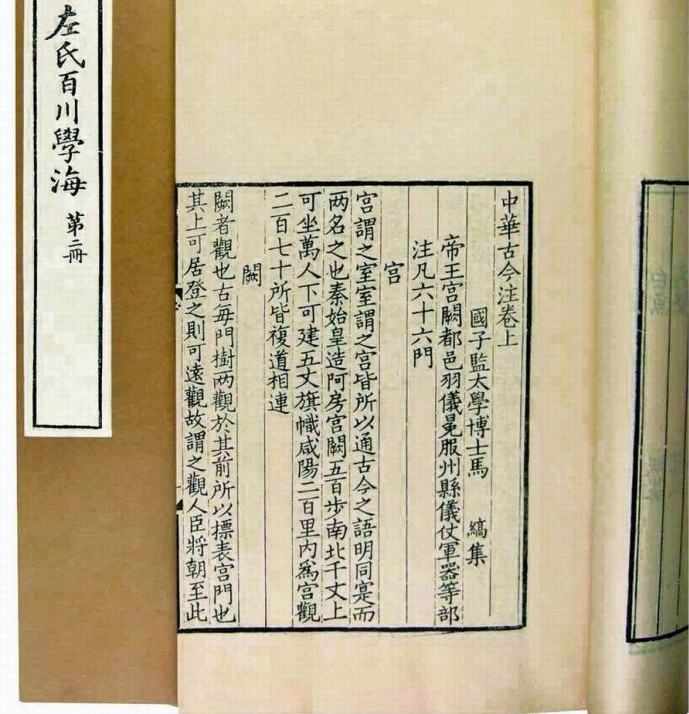 左氏百川學海 第二冊
中華古今注卷上
國子監太學博士馬 縞集
帝王宮闕都邑羽儀冕服州縣儀仗軍器等部
注凡六十六門
宮
宮謂之室室謂之宮皆所以通古今之語明同寔而
两名之也秦始皇造阿房宮闕五百步南北千丈上
可坐萬人下可建五丈旗幟咸陽二百里内爲宮觀
二百七十所皆複道相連
闕
闕者觀也古每門樹两觀於其前所以摽表宮門也
其上可居登之則可遠觀故謂之觀人臣將朝至此